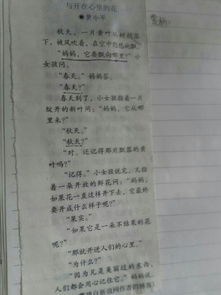 与开在心里的花
秋天，一片黄叶从树枝落
下，被风吹着，在空中
"妈妈，它要飘向哪里？"小
女孩问。
"春天。"妈妈答。
"春天？"
春天到了，小女孩指着一片
新叶问："妈妈，它从哪
里来？"
"秋天。"
"秋天？"
"对，还记得那片飘落的黄
叶吗？"
"记得。"小女孩说完，又指
着一朵开放的鲜花问："妈妈，
如果花一直这样开下去，它最终
要开成什么样子呢？"
"果实。"
"如果它是一朵不结果的花
呢？"
"那就开进人们的心里。"
"为什么？"
"因为凡是美丽的东西，
人们都会用心记住它。"妈妈说。